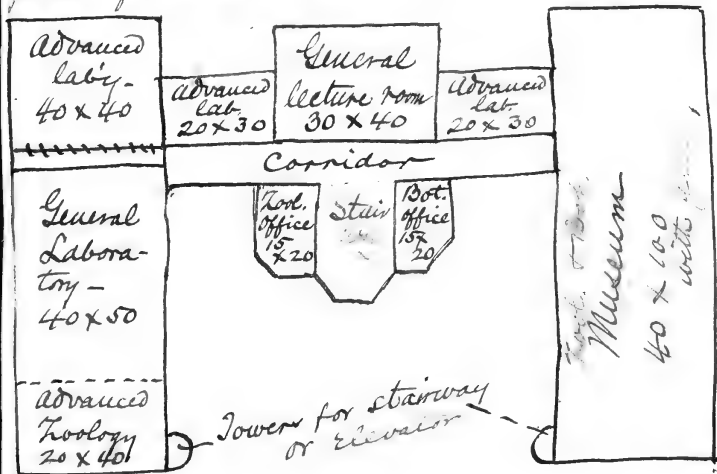 Advanced
lab'y-
40 x 40
Advanced
lab.
20 x 30
General
lecture room
30 x 40
Advanced
lab.
20 x 30
Corridor
General
Labora-
tory-
40 x 50
Zool.
office
15
x 20
Stair
Bot.
office
15 x
20
Museum
40 x 100
with
Advanced
Zoology
20 x 40
Towers for stairway
or Elevator